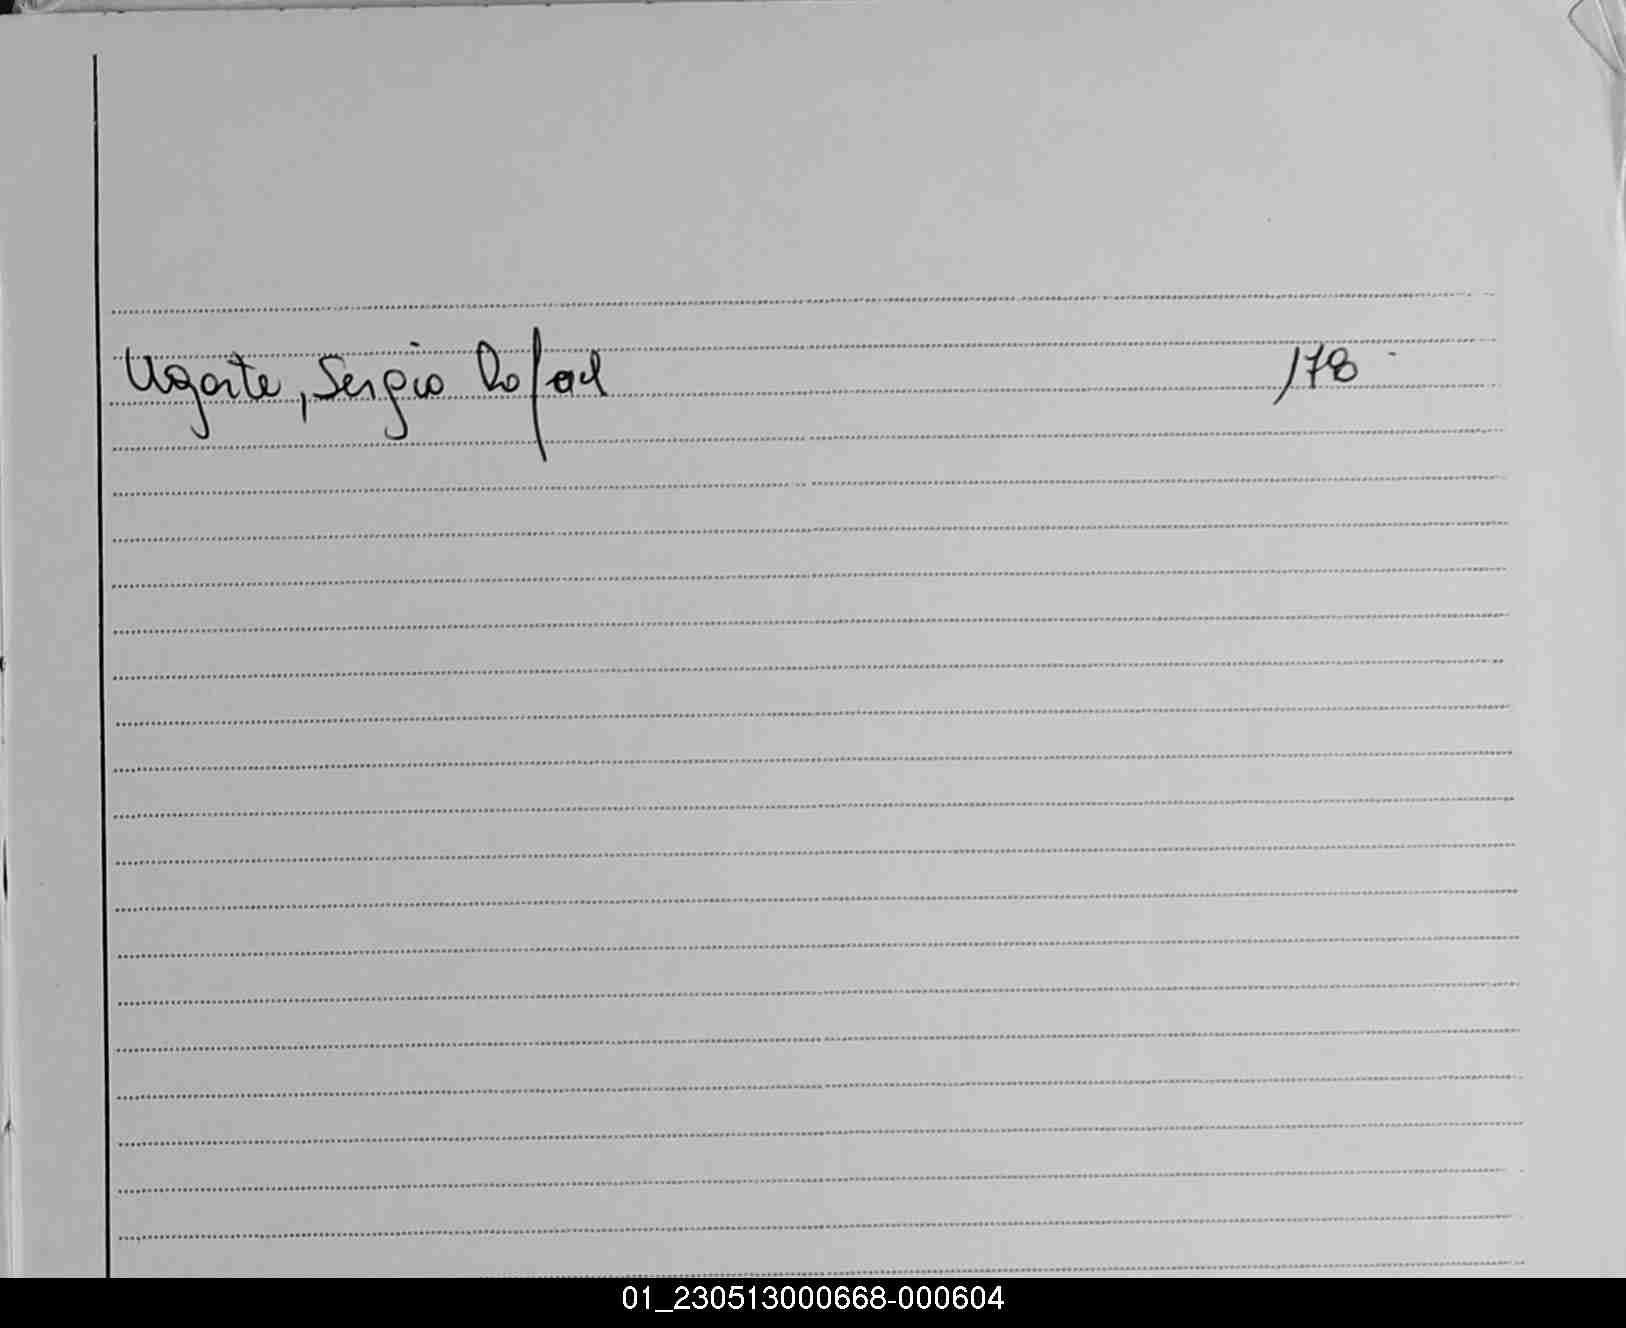 Ugarte, Sergio Rafael 178
01_230513000668-000604